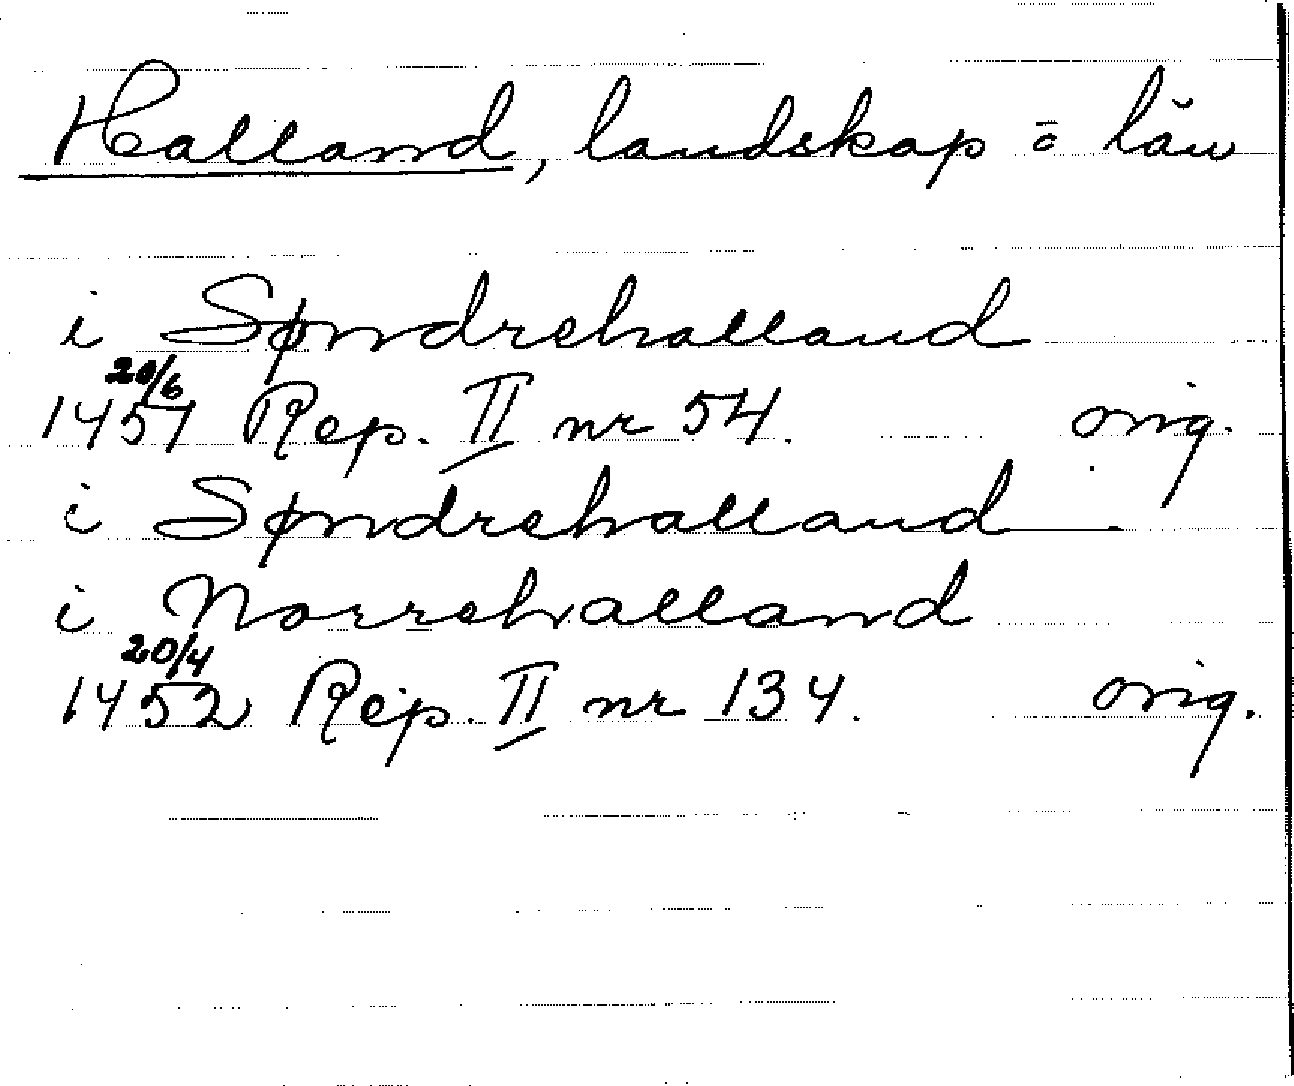 Halland, landskap o län
i Søndrehalland
20/6
1451 Rep. II nr 54. orig.
i Søndrehalland
i Norrehalland
20/4
1452 Rep. II nr 134. orig.